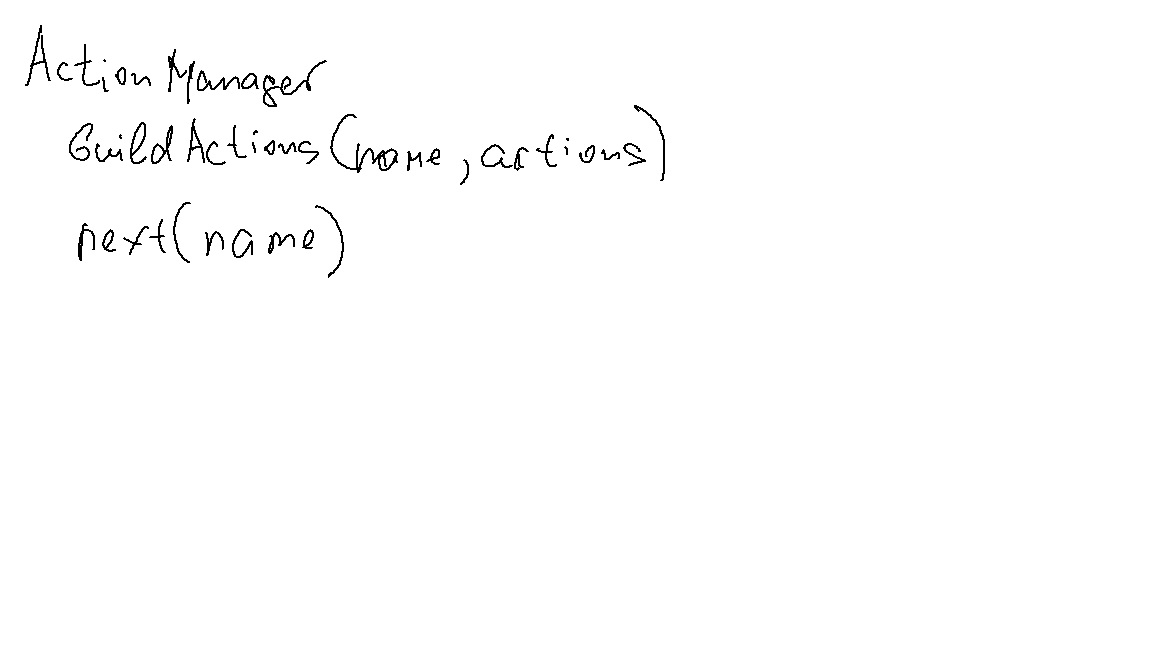 Action Manager
BuildActions(name, actions)
next(name)